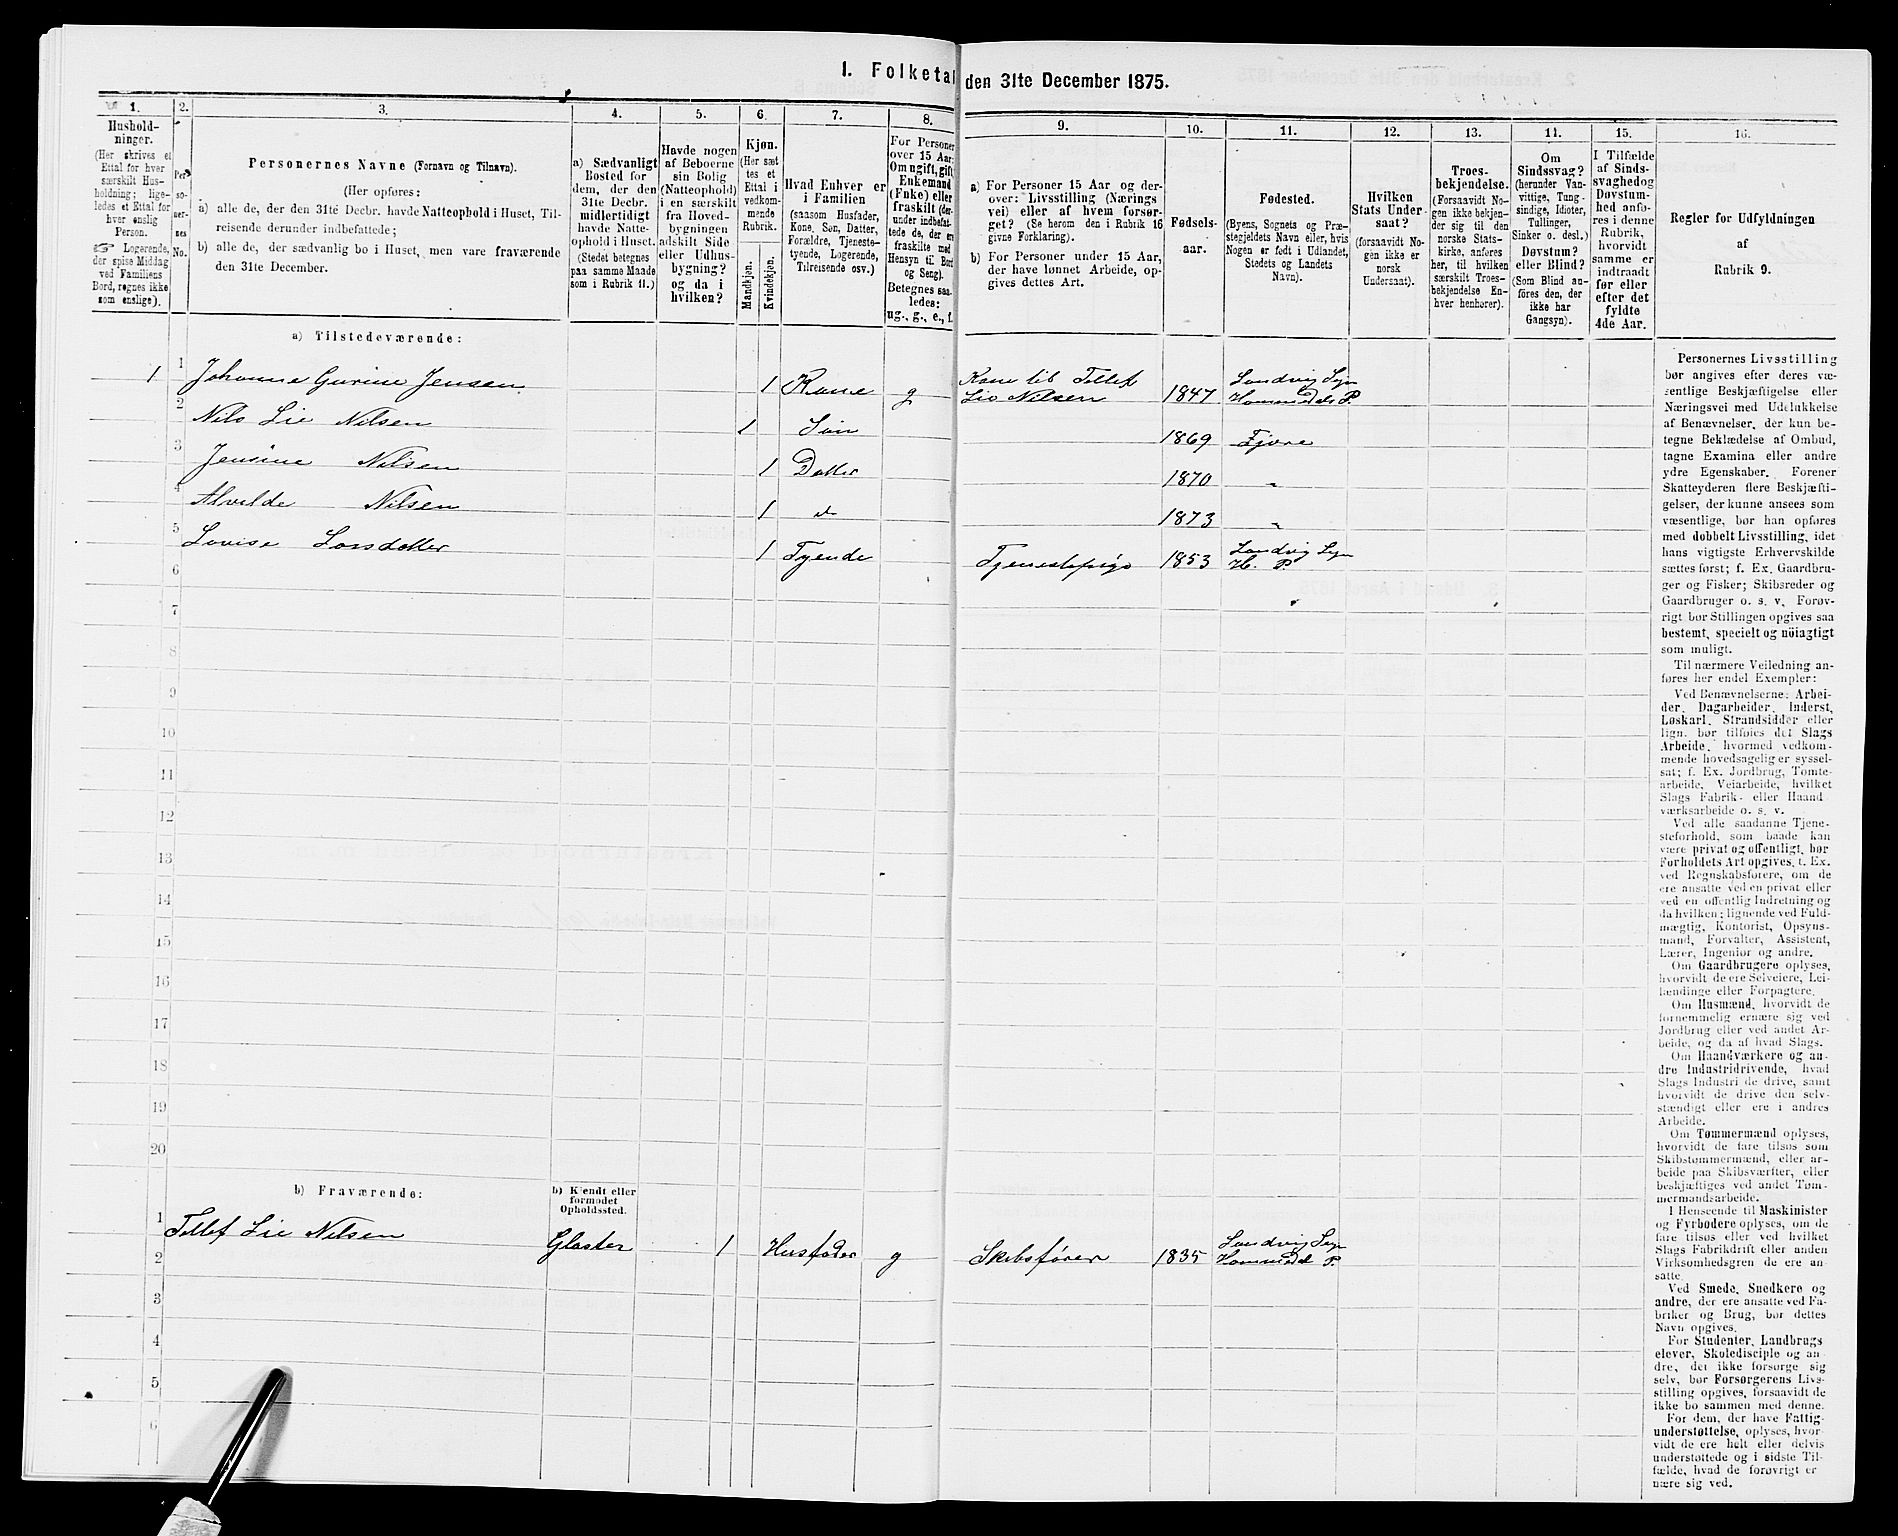 1. Folketal den 31te December 1875.
1.
Hushold-
ninger.
(Her skrives et
Ettal for hver
særskilt Hus-
holdning; lige-
ledes et Ettal for
hver enslig
Person.
☞ Logerende,
der spise Middag
ved Familiens
Bord, regnes ikke
som enslige).
2.
Per-
so-
ner-
nes
No.
3.
Personernes Navne (Fornavn og Tilnavn).
(Her opføres:
a) alle de, der den 31te Decbr. havde Natteophold i Huset, Til-
reisende derunder indbefattede;
b) alle de, der sædvanlig bo i Huset, men vare fraværende
den 31te December.
4.
a) Sædvanligt
Bosted for
dem, der den
31te Decbr.
midlertidigt
havde Natte-
ophold i Huset.
(Stedet betegnes
paa samme Maade
som i Rubrik 11.)
5.
Havde nogen
af Beboerne
sin Bolig
(Natteophold)
i en særskilt
fra Hoved-
bygningen
adskilt Side
eller Udhus-
bygning?
og da i
hvilken?
6.
Kjøn.
(Her sæt
tes et
Ettal i
vedkom-
mende
Rubrik.
Mandkjøn.
Kvindekjøn.
7.
Hvad Enhver er
i Familien
(saasom Husfader,
Kone, Søn, Datter,
Forældre, Tjeneste-
tyende, Logerende,
Tilreisende osv.)
8.
For Personer
over 15 Aar:
Om ugift, gift,
Enkemand
(Enke) eller
fraskilt (der-
under indbefat-
tede de, der ere
fraskilte med
Hensyn til Bord
og Seng).
Betegnes saa-
ledes:
ug., g., e., f.
9.
a) For Personer 15 Aar og der-
over: Livsstilling (Nærings
vei) eller af hvem forsør-
get? (Se herom den i Rubrik 16
givne Forklaring).
b) For Personer under 15 Aar,
der have lønnet Arbeide, op-
gives dettes Art.
10.
Fødsels-
aar.
11.
Fødested.
(Byens, Sognets og Præ-
stegjeldets Navn eller, hvis
Nogen er født i Udlandet,
Stedets og Landets
Navn).
12.
Hvilken
Stats Under-
saat?
(forsaavidt No-
gen ikke er
norsk
Undersaat).
13.
Troes-
bekjendelse.
(Forsaavidt No-
gen ikke bekjen-
der sig til den
norske Stats-
kirke, anføres
her, til hvilken
særskilt Troes-
bekjendelse En-
hver henhører).
11.
Om
Sindssvag?
(herunder Van-
vittige, Tung-
sindige, Idioter,
Tullinger,
Sinker o. desl.)
Døvstum?
eller Blind?
(Som Blind an-
føres den, der
ikke har
Gangsyn).
15.
I Tilfælde
af Sinds-
svaghed og
Døvstum-
hed anfø-
res i denne
Rubrik,
hvorvidt
samme er
indtraadt
før eller
efter det
fyldte
4de Aar.
16.
Regler for Udfyldningen
af
Rubrik 9.
a) Tilstedeværende:
1 1 Johanne Gurine Jensen 1 Kone g Kone til Tellef Lie Nilsen 1847 Landvig Sogn Hommedals P.
2 Nils Lie Nilsen 1 Søn 1869 Fjære
3 Jensine Nilsen 1 Datter 1870 "
4 Alvilde Nilsen 1 d 1873 "
5 Lovise Larsdatter 1 Tyende Tjenestepige 1853 Landvig Sogn H. P.
6
7
8
9
10
11
12
13
14
15
16
17
18
19
20
b) Fraværende:
b) Kjendt eller
formodet
Opholdssted.
1 Tellef Lie Nilsen Gloster 1 Husfader g Skibsfører 1835 Landvig Sogn Hommedal P.
2
3
4
5
6
Personernes Livsstilling
bør angives efter deres væ-
sentlige Beskjæftigelse eller
Næringsvei med Udelukkelse
af Benævnelser, der kun be-
tegne Beklædelse af Ombud,
tagne Examina eller andre
ydre Egenskaber. Forener
Skatteyderen flere Beskjæfti-
gelser, der kunne ansees som
væsentlige, bør han opføres
med dobbelt Livsstilling, idet
hans vigtigste Erhvervskilde
sættes først; f. Ex. Gaardbru-
ger og Fisker; Skibsreder og
Gaardbruger o. s. v. Forøv-
rigt bør Stillingen opgives saa
bestemt, specielt og nöiagtigt
som muligt.
Til nærmere Veiledning an-
føres her endel Exempler:
Ved Benævnelserne: Arbei-
der, Dagarbeider, Inderst,
Løskarl, Strandsidder eller
lign. bør tilføies det Slags
Arbeide, hvormed vedkom-
mende hovedsagelig er syssel-
sat; f. Ex. Jordbrug, Tomte-
arbeide, Veiarbeide, hvilket
Slags Fabrik- eller Haand
værksarbeide o. s. v.
Ved alle saadanne Tjene-
steforhold, som baade kan
være privat og offentligt, bør
Forholdets Art opgives, t. Ex.
ved Regnskabsførere, om de
ere ansatte ved en privat eller
ved en offentlig Indretning og
da hvilken; lignende ved Fuld-
mægtig, Kontorist, Opsyns-
mand, Forvalter, Assistent,
Lærer, Ingeniør og andre.
Om Gaardbrugere oplyses,
hvorvidt de ere Selveiere, Lei-
lændinge eller Forpagtere.
Om Husmænd, hvorvidt de
fornemmelig ernære sig ved
Jordbrug eller ved andet Ar-
beide, og da af hvad Slags.
Om Haandværkere og an-
dre Industridrivende, hvad
Slags Industri de drive, samt
hvorvidt de drive den selv-
stændigt eller ere i andres
Arbeide.
Om Tømmermænd oplyses,
hvorvidt de fare tilsøs som
Skibstømmermænd, eller ar-
beide paa Skibsværfter, eller
beskjæftiges ved andet Tøm-
mermandsarbeide.
I Henseende til Maskinister
og Fyrbødere oplyses, om de
fare tilsøs eller ved hvilket
Slags Fabrikdrift eller anden
Virksomhedsgren de ere an-
satte.
Ved Smede, Snedkere og
andre, der ere ansatte ved Fa-
briker og Brug, bør dettes
Navn opgives.
For Studenter, Landbrugs
elever, Skoledisciple og an
dre, det ikke forsørge sig
selv, bør Forsørgerens Livs-
stilling opgives, forsaavidt de
ikke bo sammen med denne.
For dem, der have Fattig-
understøttelse, oplyses, hvor-
vidt de ere helt eller delvis
understøttede og i sidste Til-
fælde, hvad de forøvrigt er
nære sig ved.